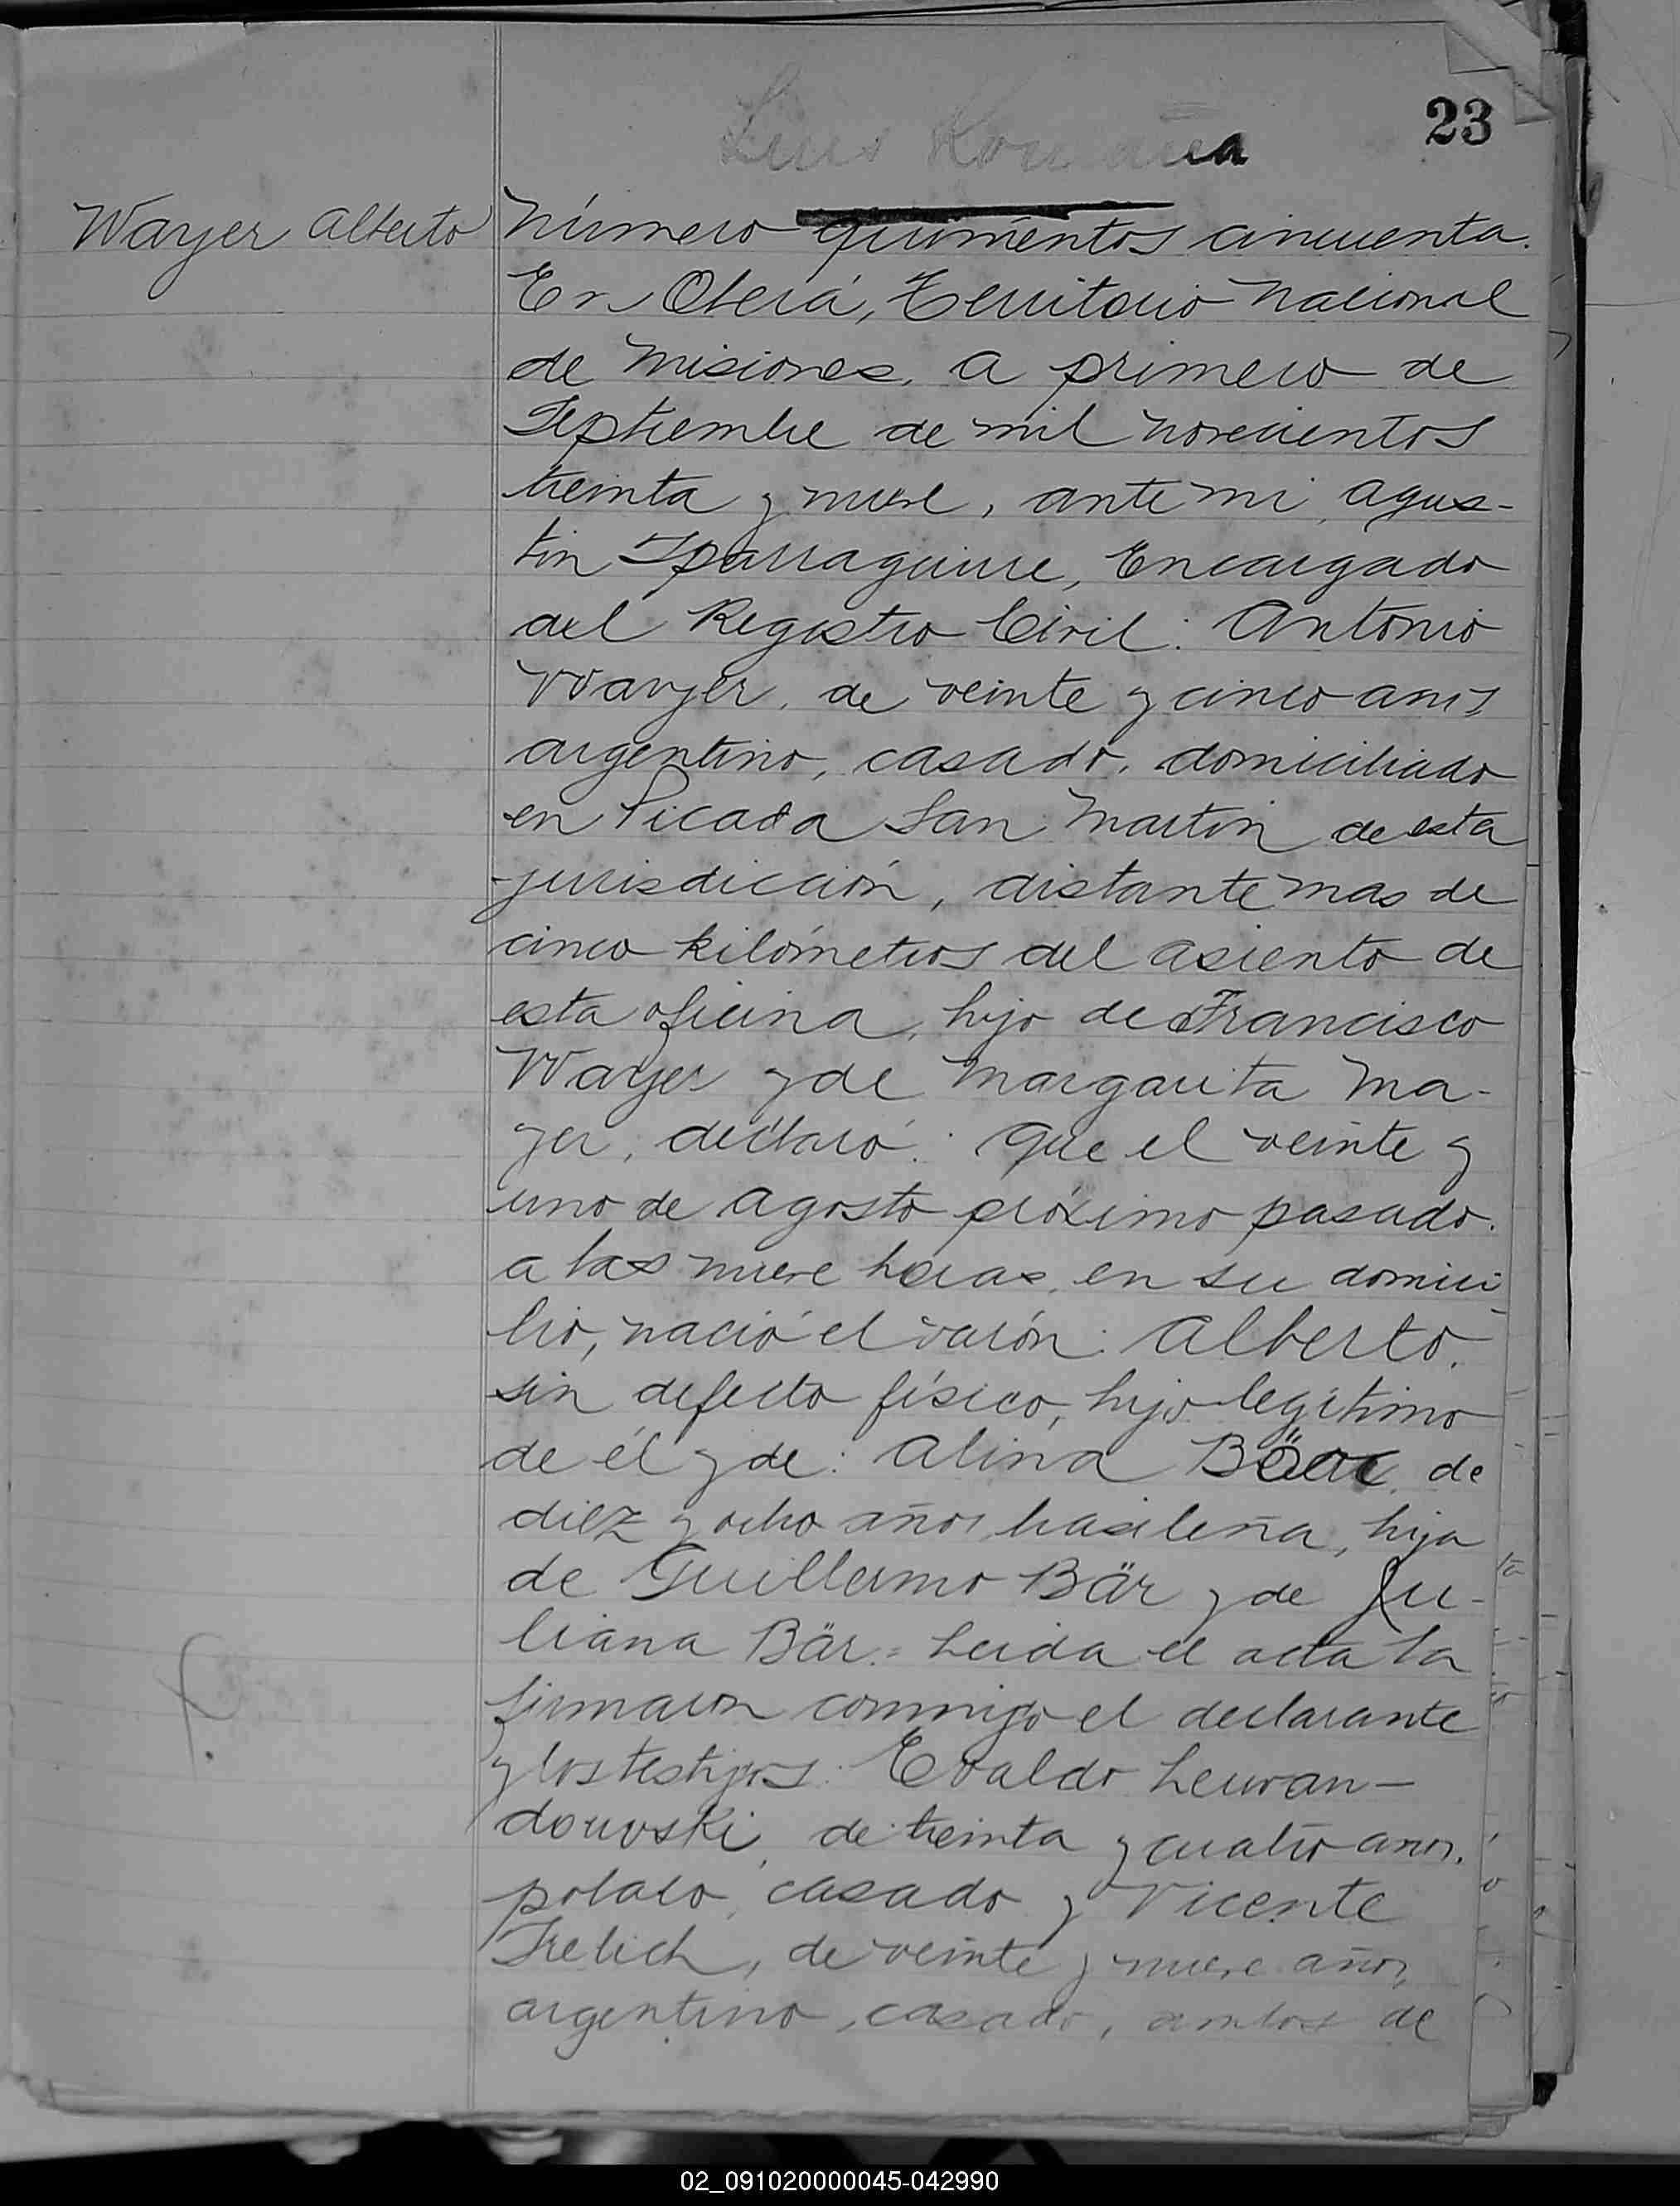 23
Luis
Wayer Alberto
Número quinientos cincuenta.
En Oberá, Territorio Nacional
de Misiones, a primero de
Septiembre de mil novecientos
treinta y nueve, ante mi, Agus-
tin Iparraguirre, Encargado
del Registro Civil: Antonio
Wayer, de veinte y cinco años
argentino, casado, domiciliado
en Picada San Martin de esta
jurisdicción, distante mas de
cinco kilómetros del asiento de
esta oficina, hijo de Francisco
Wayer y de Margarita Ma-
yer, declaró: Que el veinte y
uno de Agosto próximo pasado.
a las nueve horas, en su domici-
lio, nació el varón: Alberto.
sin defecto físico, hijo legítimo
de él y de: Alina Bäer, de
diez y ocho años, brasileña, hija
de Guillermo Bär y de Ju-
liana Bär.= Leida el acta la
firmaron conmigo el declarante
y los testigos: Evaldo Lewan-
dowski, de treinta y cuatro años.
polaco, casado y Vicente
Trelich, de veinte y nueve años,
argentino, casado, ambos de
02_091020000045-042990